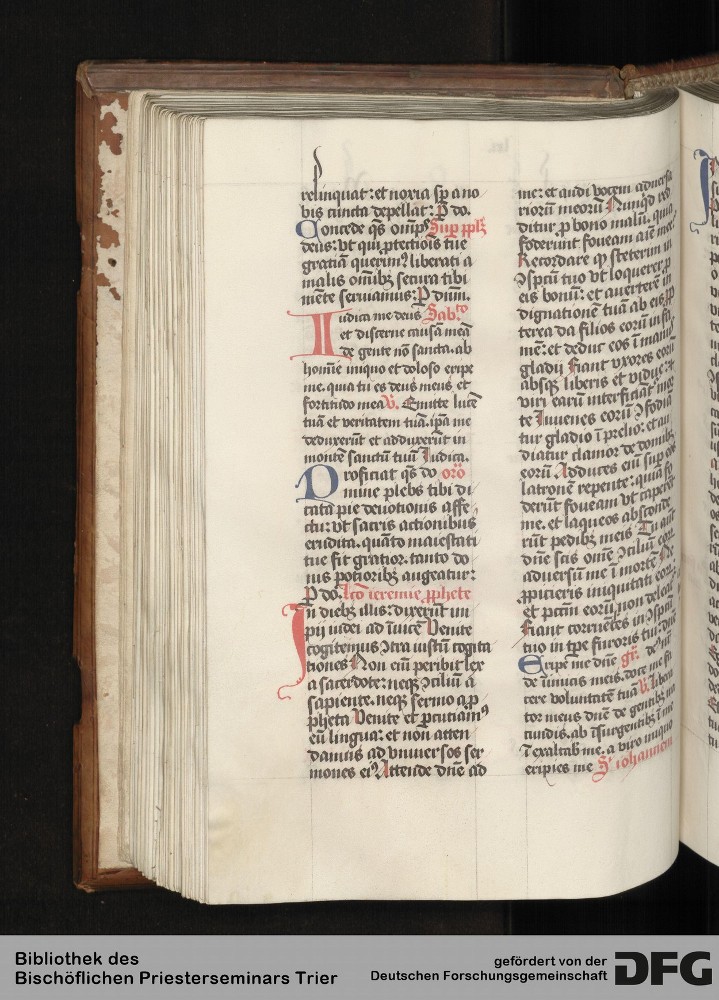 relinquat: et noxia sp̄ a no
bis cuncta depellat: P̄ do.
Concede q̄s om̅ps̄ Sup̄ pp̄lꝫ
deus: vt qui ꝓtectiois tue
gratiā querim⁹ liberati a
malis om̅ibꝫ secura tibi
mēte seruiamus: P̄ dnm̄.
Iudica me deus Sabbto
et discerne causā meā
de gente nō sancta. ab
homīe iniquo et doloso eripe
me. quia tu es deus meus et
fortitudo mea v̄. Emitte lucē
tuā et veritatem tuā. ip̄a me
deduxerūt et adduxerūt in
montē sanctū tuū Iudica.
Proficiat q̄s do oro
mine plebs tibi di
cata pie deuotionis affe
ctu: vt sacris actionibus
erudita. quāto maiestati
tue fit gratior. tanto do
nis potioribꝫ augeatur:
P̄ do. lc̄o ieremie ꝓphete
In diebꝫ illis: dixerūt im
pij iudei ad īuicē Venite
cogitemus ꝯtra iustū cogita
tiones Non eī peribit lex
a sacerdote: neqꝫ ꝯciliū a
sapiente. neqꝫ sermo a ꝓ
pheta Venite et ꝑcutiam⁹
eū lingua: et non atten
damus ad vniuersos ser
mones ei⁹ Attende dn̄e ad
me: et audi vocem aduersa
riorū meorū Nunqd red
ditur ꝓ bono malū. quia
foderunt foueam aīe mee
Recordare ꝙ steterim in
ꝯspctu tuo vt loquerer ꝓ
eis bonū: et auerterē in
dignationē tuā ab eis. ꝓp
terea da filios eorū in fa
mē: et deduc eos ī manus
gladij Fiant vxores eorū
absqꝫ liberis et vidue: ⁊
viri earū interficiāt mor
te Iuuenes eorū ꝯfodiā
tur gladio ī prelio: et au
diatur clamor de domibꝫ
eorū Adduces eī sup̄ eos
latronē repente: quia fo
derūt foueam vt caperēt
me. et laqueos absconde
rūt pedibꝫ meis Tu aut̄
dn̄e scis om̅e ꝯciliū eorū
aduersū me ī mortē Ne
ꝓpicieris iniquitati eorū:
et pctm̄ eorū non deleat
Fiant corruētes in ꝯspctu
tuo in tp̄e furoris tui: dn̄e
Eripe me dn̄e gr̄.
de īimicis meis. doce me fa
cere voluntatē tuā v̄. libera
tor meus dn̄e de gentibꝫ ira
cundis. ab īsurgentibꝫ ī me
ī exaltab me. a viro iniquo
eripies me S' iohannem
Bibliothek des
Bischöflichen Priesterseminars Trier
gefördert von der
Deutschen Forschungsgemeinschaft
DFG